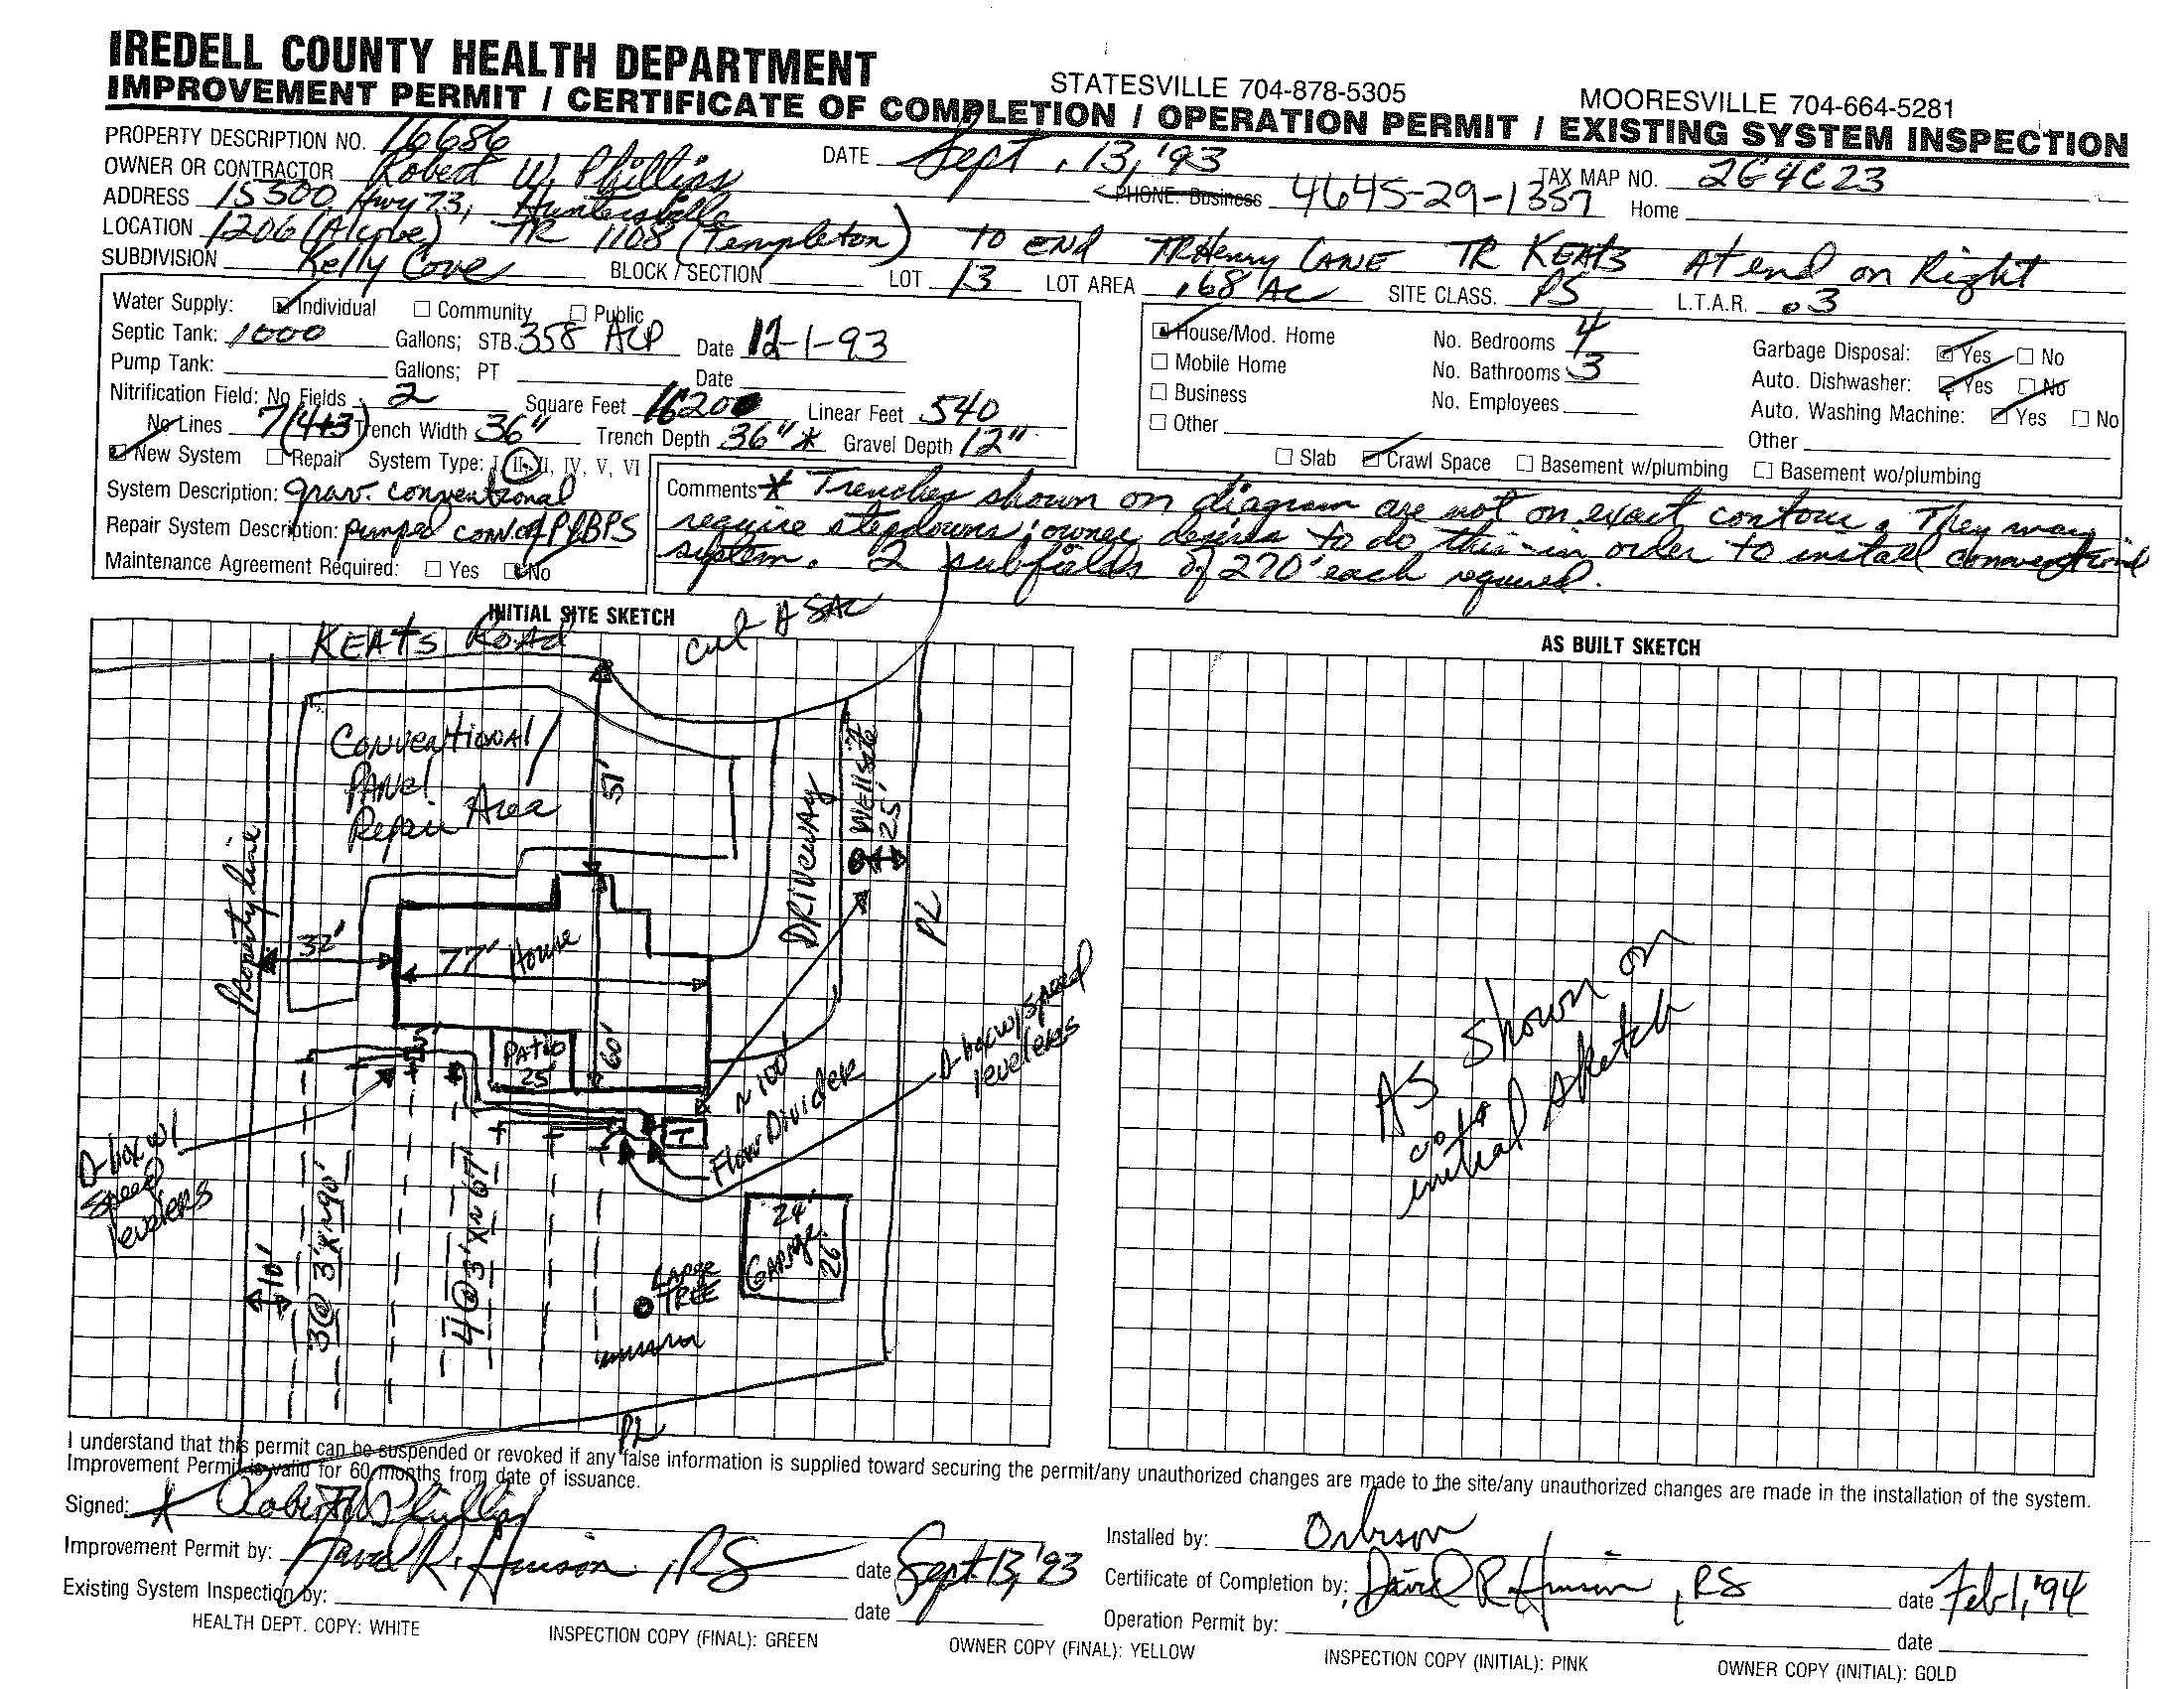 IREDELL COUNTY HEALTH DEPARTMENT
STATESVILLE 704-878-5305 MOORESVILLE 704-664-5281
IMPROVEMENT PERMIT / CERTIFICATE OF COMPLETION / OPERATION PERMIT / EXISTING SYSTEM INSPECTION
PROPERTY DESCRIPTION NO. 16686 DATE Sept. 13, '93 TAX MAP NO. 2G4C23
OWNER OR CONTRACTOR Robert W. Phillips PHONE: Business 4645-29-1357 Home
ADDRESS 15300 Hwy 73, Huntersville
LOCATION 1206 (Alcove) TR 1108 (Templeton) TO END TR Henry LANE TR KEATS At end on Right
SUBDIVISION Kelly Cove BLOCK / SECTION LOT 13 LOT AREA .68 Ac SITE CLASS. PS L.T.A.R. .3
Water Supply: Individual Community Public
Septic Tank: 1000 Gallons; STB. 358 ACP Date 12-1-93
Pump Tank: Gallons; PT Date
Nitrification Field: No Fields 2 Square Feet 1620 Linear Feet 540
No Lines 7(4+3) Trench Width 36" Trench Depth 36" * Gravel Depth 12"
New System Repair System Type: I, II, III, IV, V, VI
System Description: grav. conventional
Repair System Description: pumped conv. or PPBPS
Maintenance Agreement Required: Yes No
House/Mod. Home No. Bedrooms 4 Garbage Disposal: Yes No
Mobile Home No. Bathrooms 3 Auto. Dishwasher: Yes No
Business No. Employees Auto. Washing Machine: Yes No
Other Other
Slab Crawl Space Basement w/plumbing Basement wo/plumbing
Comments * Trenches shown on diagram are not on exact contour. They may
require stepdowns; owner desires to do this in order to install conventional
system. 2 subfields of 270' each required.
INITIAL SITE SKETCH
AS BUILT SKETCH
KEATS ROAD
Cul A SAC
CONVENTIONAL/
PANEL
Repair Area
51'
DRIVEWAY
WEll Site
25'
Property line
PL
32'
77' House
PATIO
25'
5'
60'
~100'
Flow Divider
D-box w/ speed
levelers
T
D-box w/
speed
levelers
10'
3@3'x~90'
4@3'x~67'
LARGE
TREE
24'
GARAGE
26'
PL
AS Shown on
initial sketch
I understand that this permit can be suspended or revoked if any false information is supplied toward securing the permit/any unauthorized changes are made to the site/any unauthorized changes are made in the installation of the system.
Improvement Permit is valid for 60 months from date of issuance.
Signed: Robert W Phillips
Installed by: Orbison
Improvement Permit by: David R. Hinson, RS date Sept 13, '93
Certificate of Completion by: David R. Hinson, RS date Feb 1, '94
Existing System Inspection by: date
Operation Permit by: date
HEALTH DEPT. COPY: WHITE INSPECTION COPY (FINAL): GREEN OWNER COPY (FINAL): YELLOW INSPECTION COPY (INITIAL): PINK OWNER COPY (INITIAL): GOLD